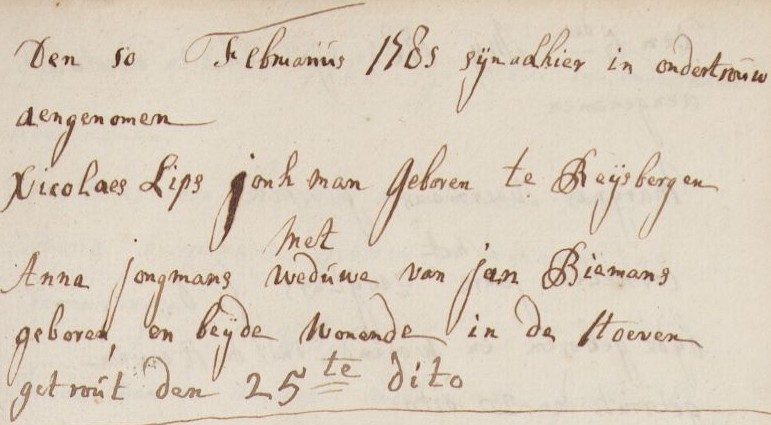 Den 10 Februarius 1785 sijn alhier in ondertrouw
aengenomen
Nicolaes Lips jonh man geboren te Reijsbergen
met
Anna jongmans weduwe van jan Biemans
geboren, en beijde wonende in de Hoeven
getrout den 25te dito